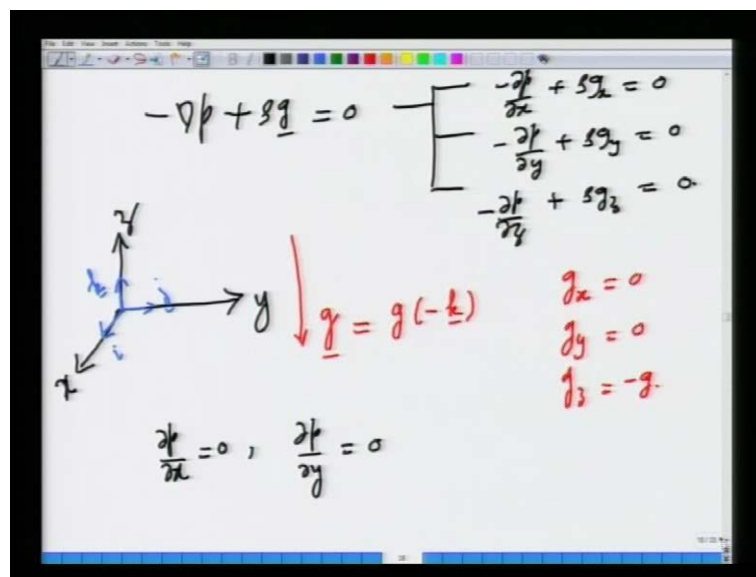 File Edit View Insert Actions Tools Help
-∇p + ρg = 0
-∂p/∂x + ρg_x = 0
-∂p/∂y + ρg_y = 0
-∂p/∂z + ρg_z = 0.
z
k
j
y
i
x
g = g(-k)
g_x = 0
g_y = 0
g_z = -g.
∂p/∂x = 0, ∂p/∂y = 0